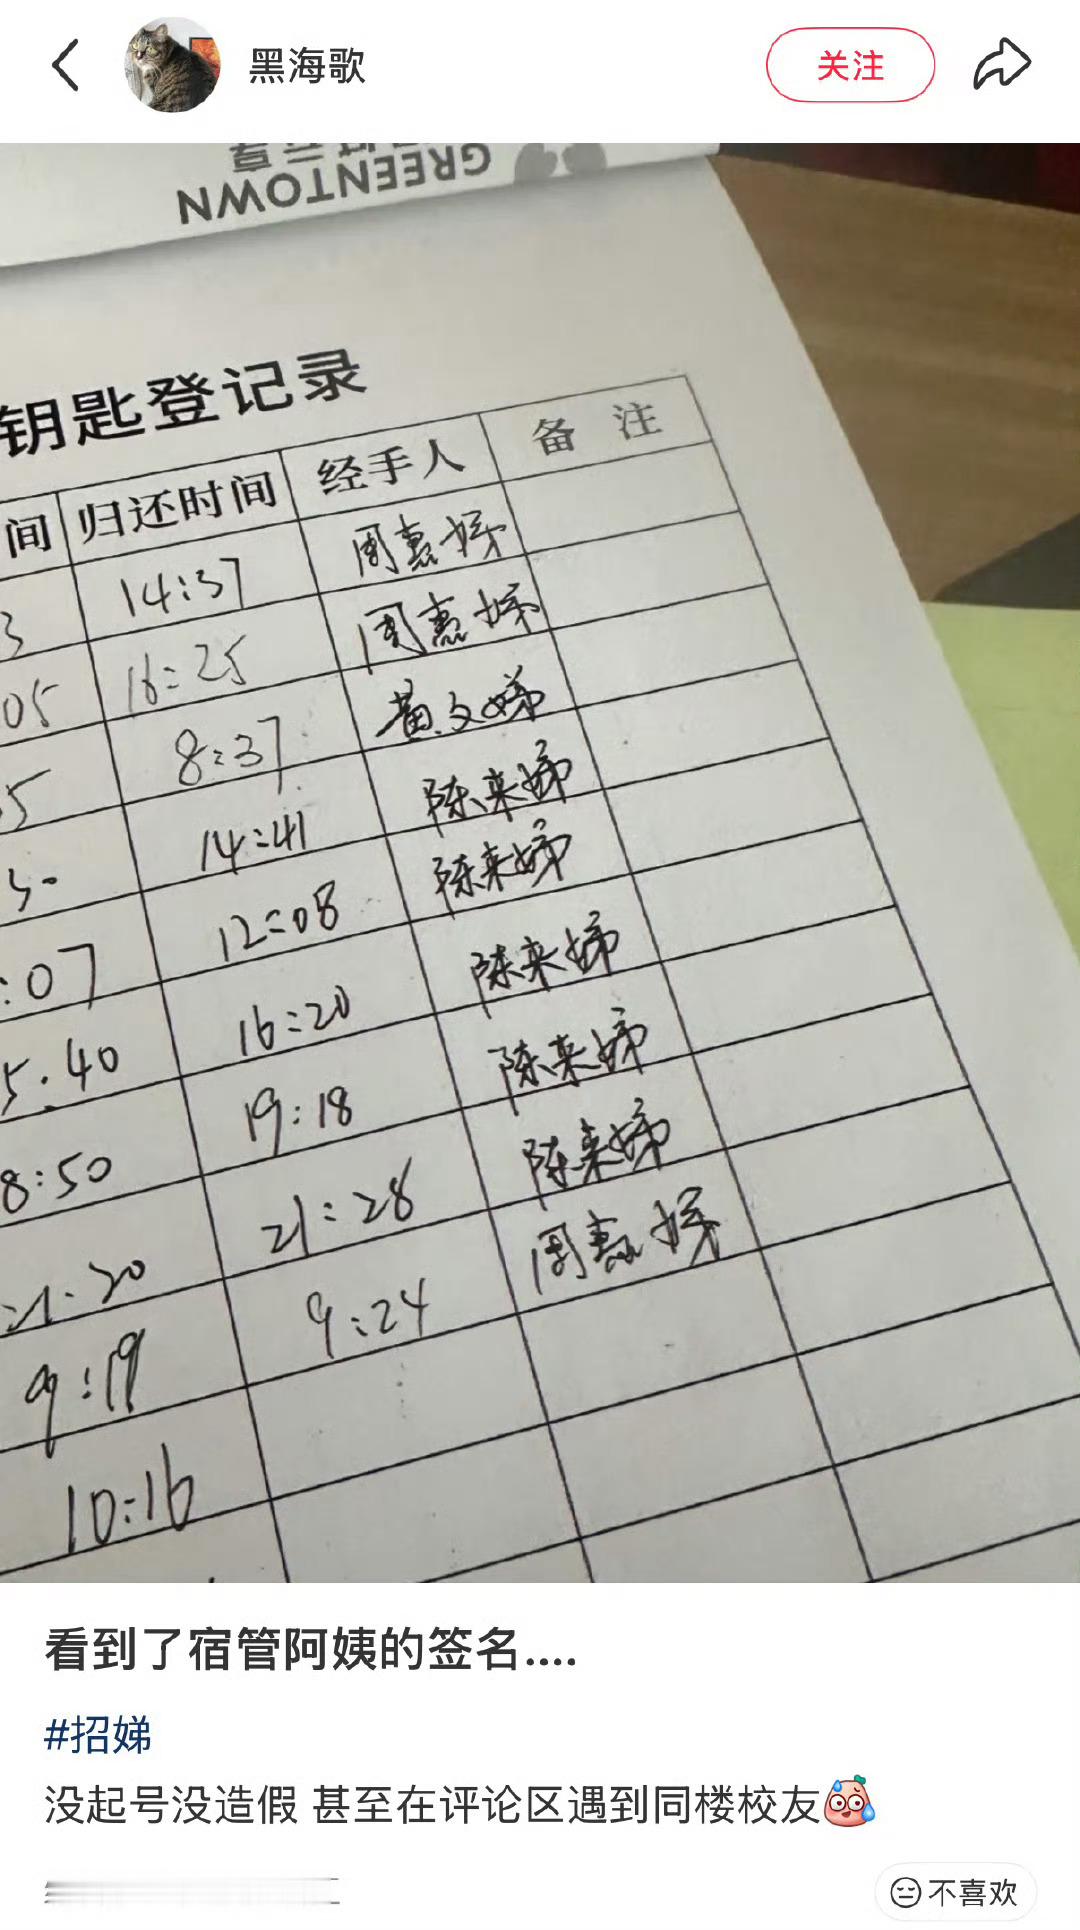 黑海歌
关注
GREENTOWN
钥匙登记录
间 归还时间 经手人 备注
3 14:37 周惠娣
05 16:25 周惠娣
5 8:37 黄文娣
30 14:41 陈来娣
:07 12:08 陈来娣
5:40 16:20 陈来娣
8:50 19:18 陈来娣
21:20 21:28 陈来娣
9:19 9:24 周惠娣
10:16
看到了宿管阿姨的签名....
#招娣
没起号没造假 甚至在评论区遇到同楼校友
不喜欢